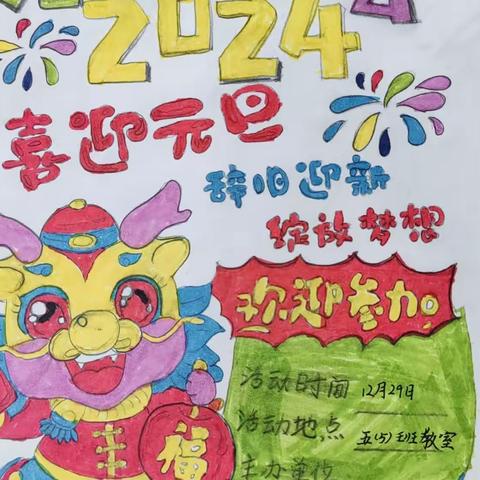 2024
喜迎元旦
辞旧迎新
绽放梦想
欢迎参加
活动时间 12月29日
活动地点 五(5)班教室
主办单位
福